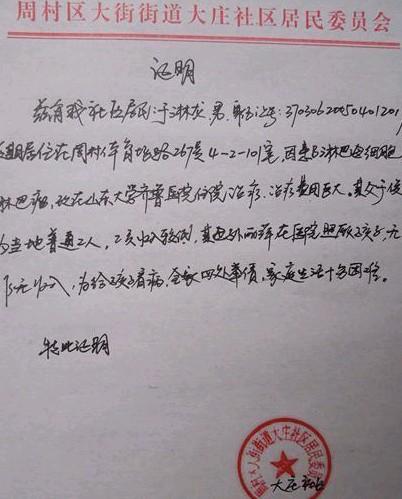 周村区大街街道大庄社区居民委员会
证明
兹有我社区居民于淋龙 男 身份证号:37030620050401201
长期居住在周村体育场路267号4-2-101室,因患B淋巴母细胞
淋巴瘤,现在山东大学齐鲁医院住院治疗,治疗费用巨大,其父于俊
为当地普通工人,工资收入较低,其母孙丽萍在医院照顾孩子,无
任何收入,为给孩子看病,全家四处举债,家庭生活十分困难。
特此证明
大街街道大庄社区居民委员
大庄社区